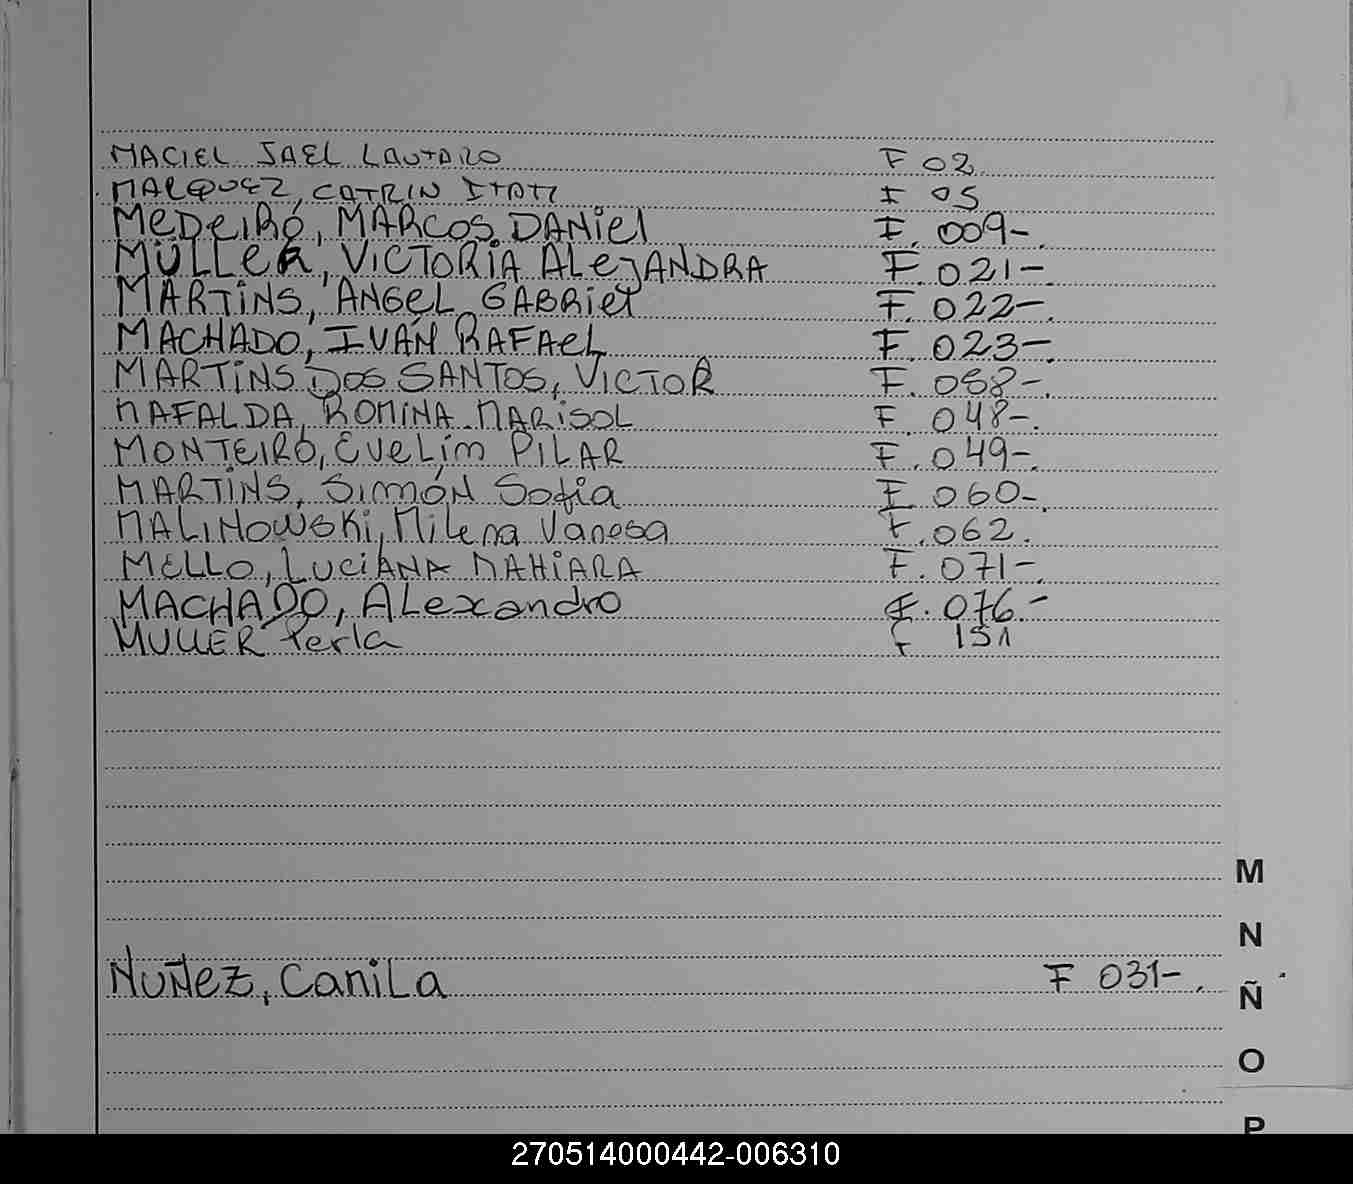 MACIEL JAEL LAUTARO F 02
MARQUEZ, CATRIN ITATI F 05
MEDEIRO, MARCOS DANIEL F. 009-.
MÜLLER, VICTORIA ALEJANDRA F. 021-
MARTINS, ANGEL GABRIEL F. 022-.
MACHADO, IVÁN RAFAEL F. 023-.
MARTINS DOS SANTOS, VICTOR F. 038-.
MAFALDA, ROMINA MARISOL F. 048-.
MONTEIRO, EVELIM PILAR F. 049-.
MARTINS, SIMMÓN Sofia F. 060-.
MALINOWSKI, Milena Vanesa F. 062.
MELLO, LUCIANA NAHIARA F. 071-.
MACHADO, ALexandro F. 076.-
MULLER Perla F 151
NUÑEZ, CamiLa F 031-.
M
N
Ñ
O
P
270514000442-006310